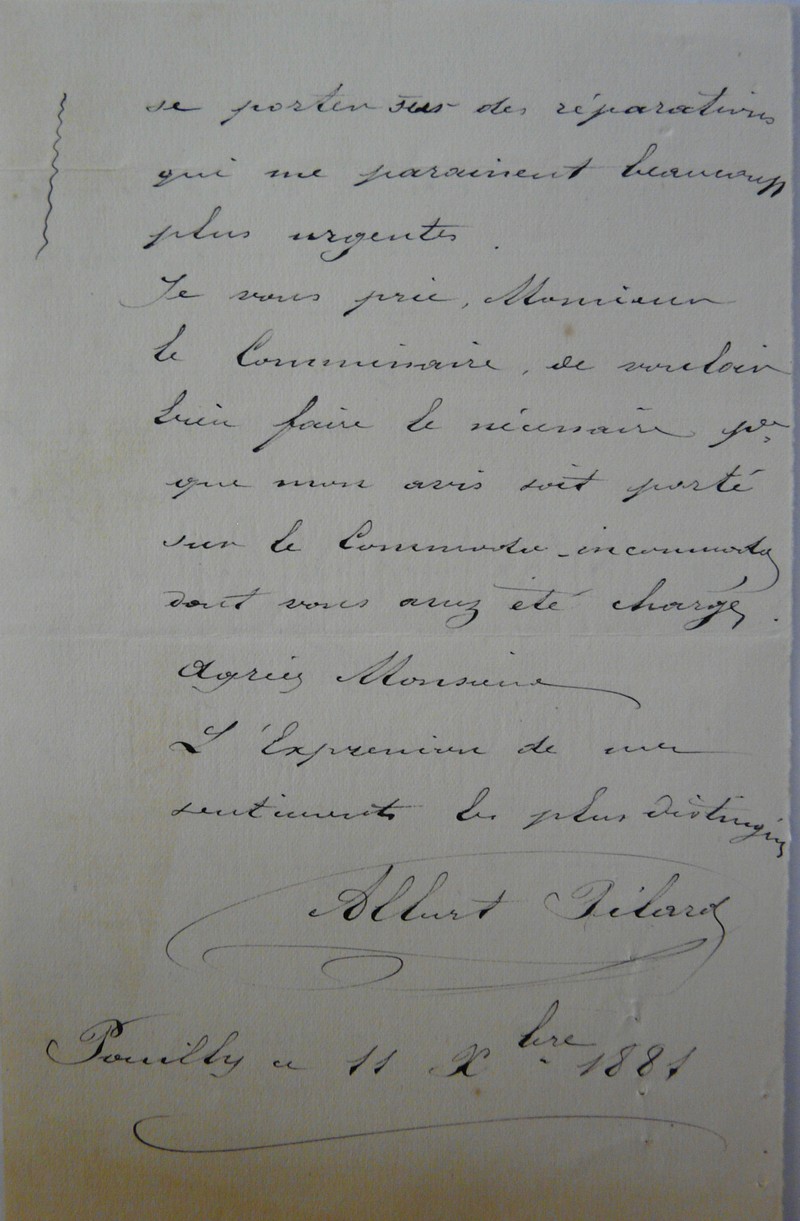 se porter sur des réparations
qui me paraissent beaucoup
plus urgentes.
Je vous prie, Monsieur
le Commissaire, de vouloir
bien faire le nécessaire pr
que mon avis soit porté
sur le Commodo-incommodo
dont vous avez été chargé.
Agréez Monsieur
L'Expression de mes
sentiments les plus distingués
Albert Pilard
Pouilly le 11 Xbre 1881